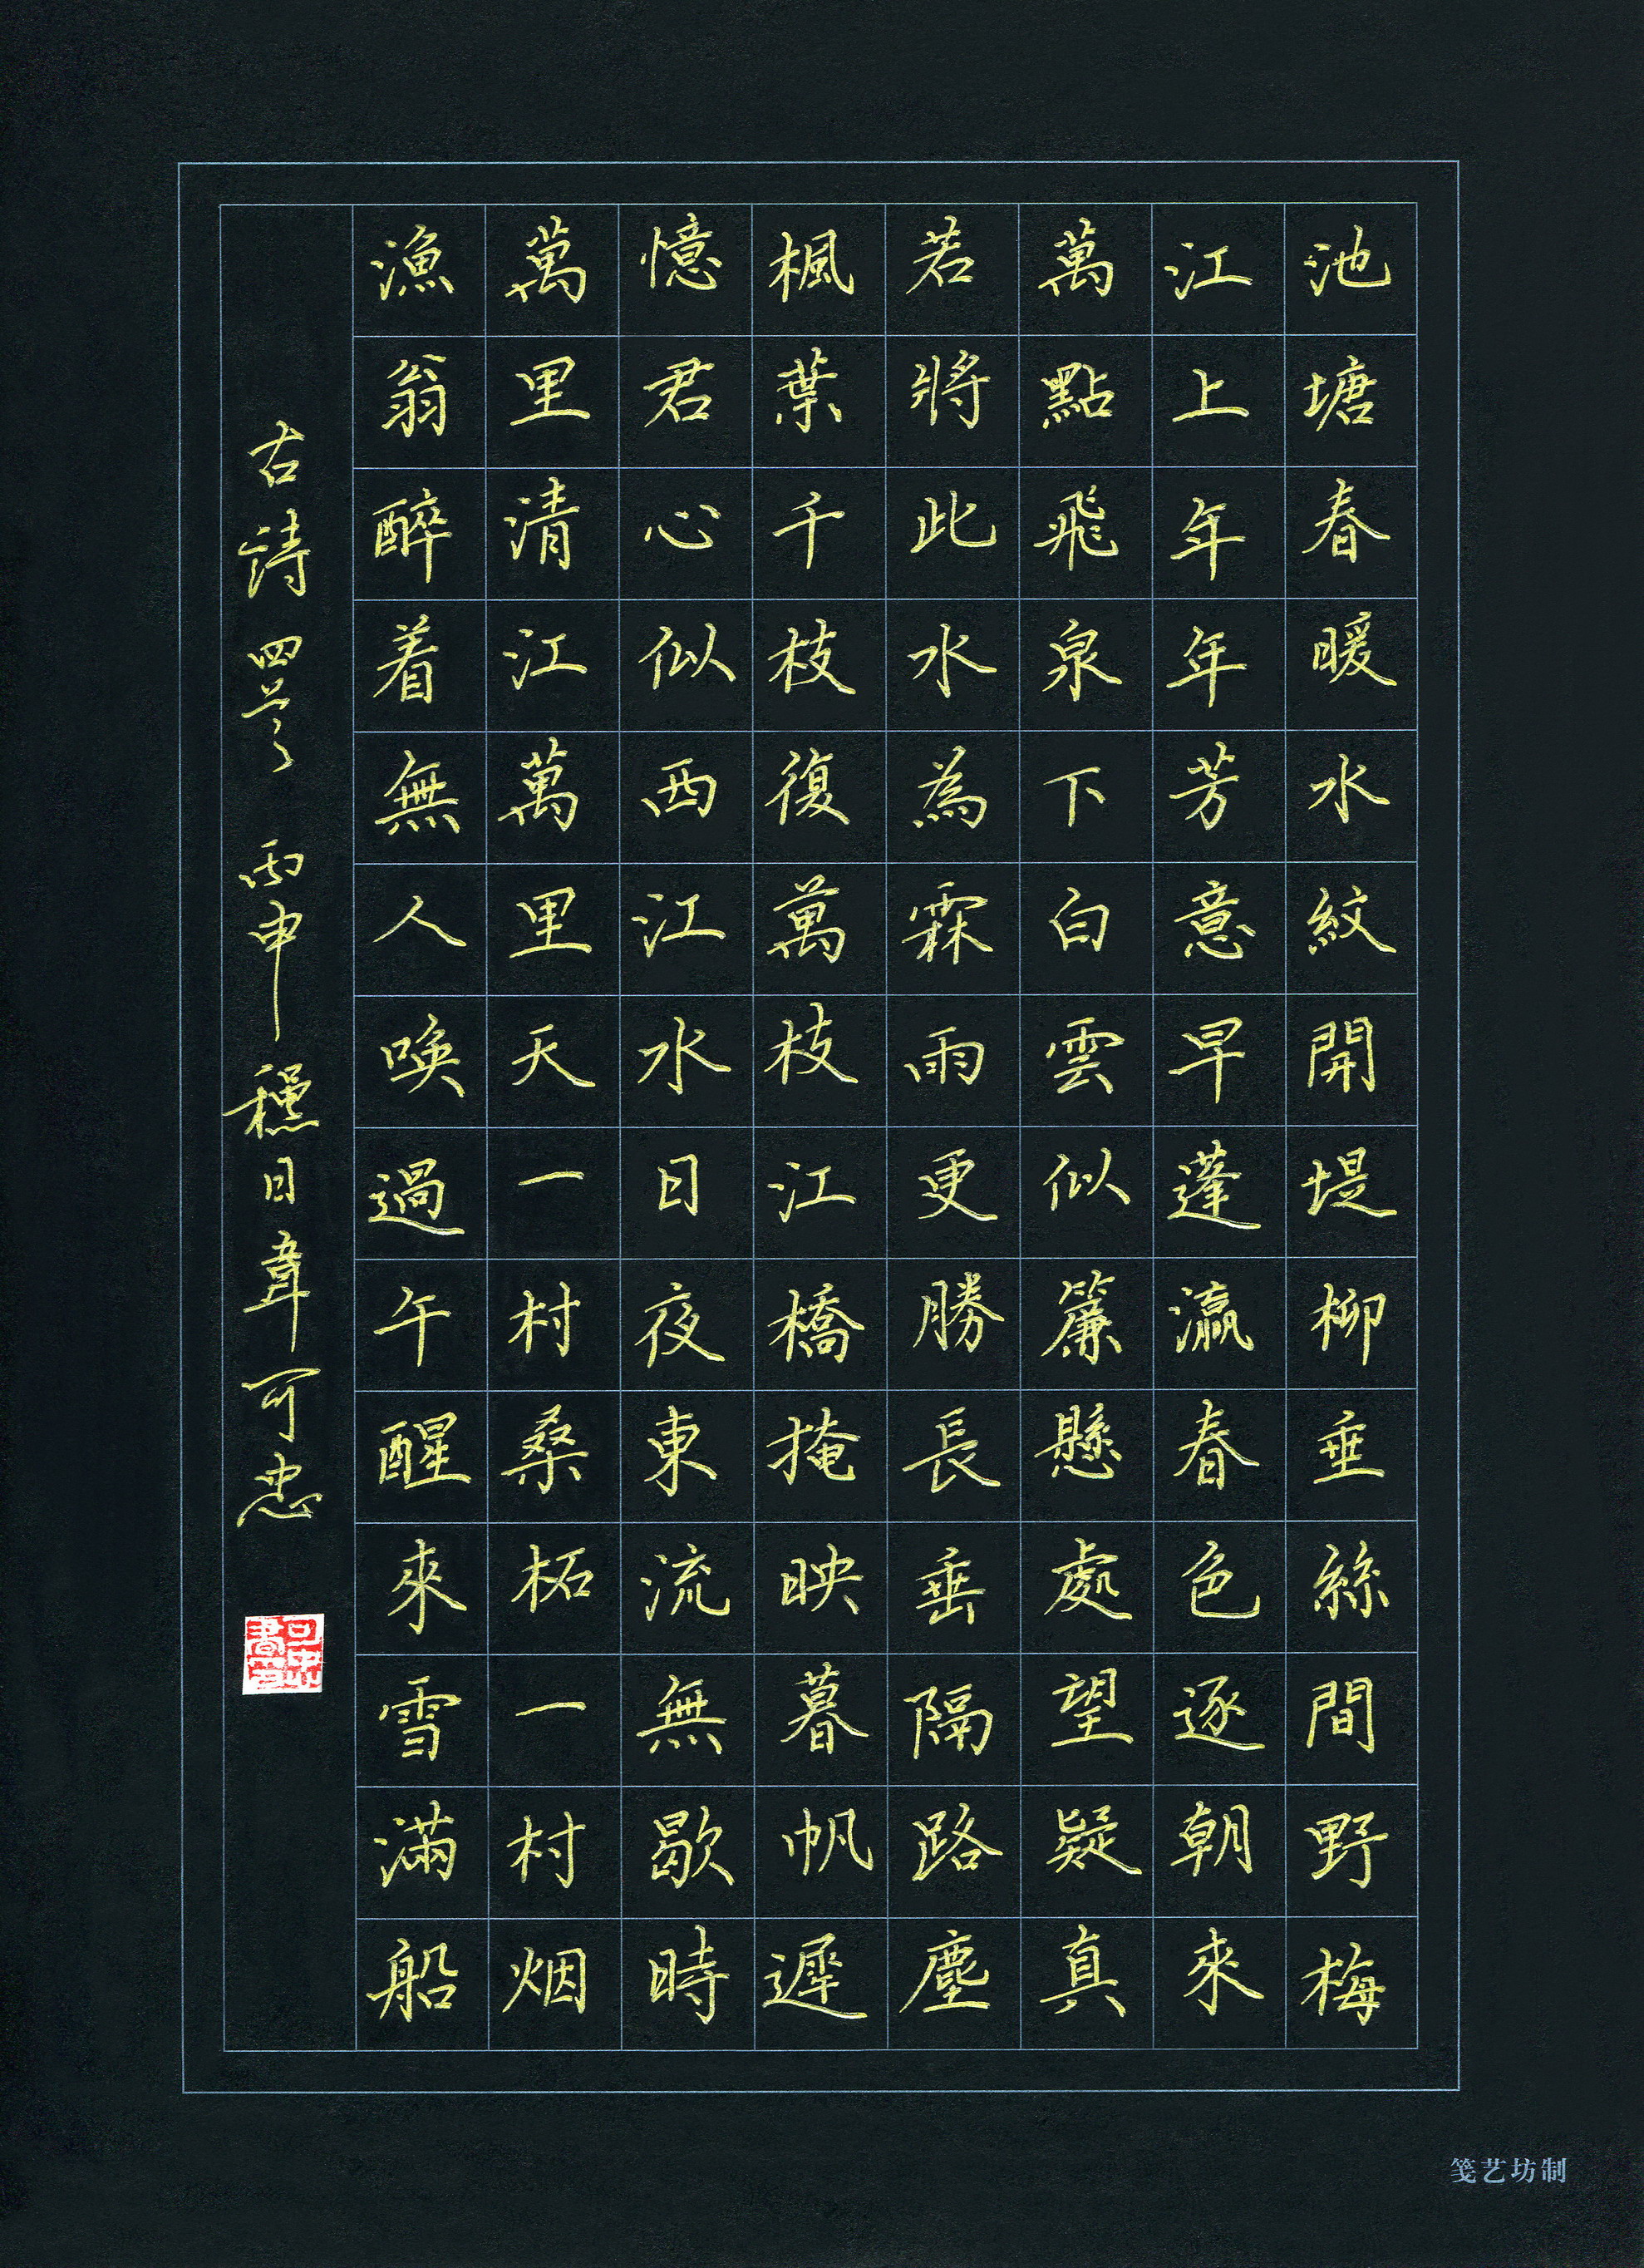 池塘春暖水紋開堤柳垂絲間野梅
江上年年芳意早蓬瀛春色逐朝來
萬點飛泉下白雲似簾懸處望疑真
若將此水為霖雨更勝長垂隔路塵
楓葉千枝復萬枝江橋掩映暮帆遲
憶君心似西江水日夜東流無歇時
萬里清江萬里天一村桑柘一村烟
漁翁醉着無人喚過午醒來雪滿船
古詩四首 丙申穐日韋可忠
可忠書印
笺艺坊制